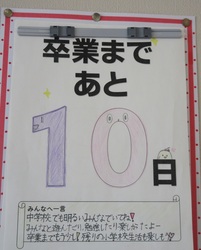 卒業まで
あと
10日
みんなへ一言
中学校でも明るいみんなでいてね!
みんなと遊んだり、勉強したり楽しかったよー
卒業まであと少し!残りの小学校生活も楽しもう